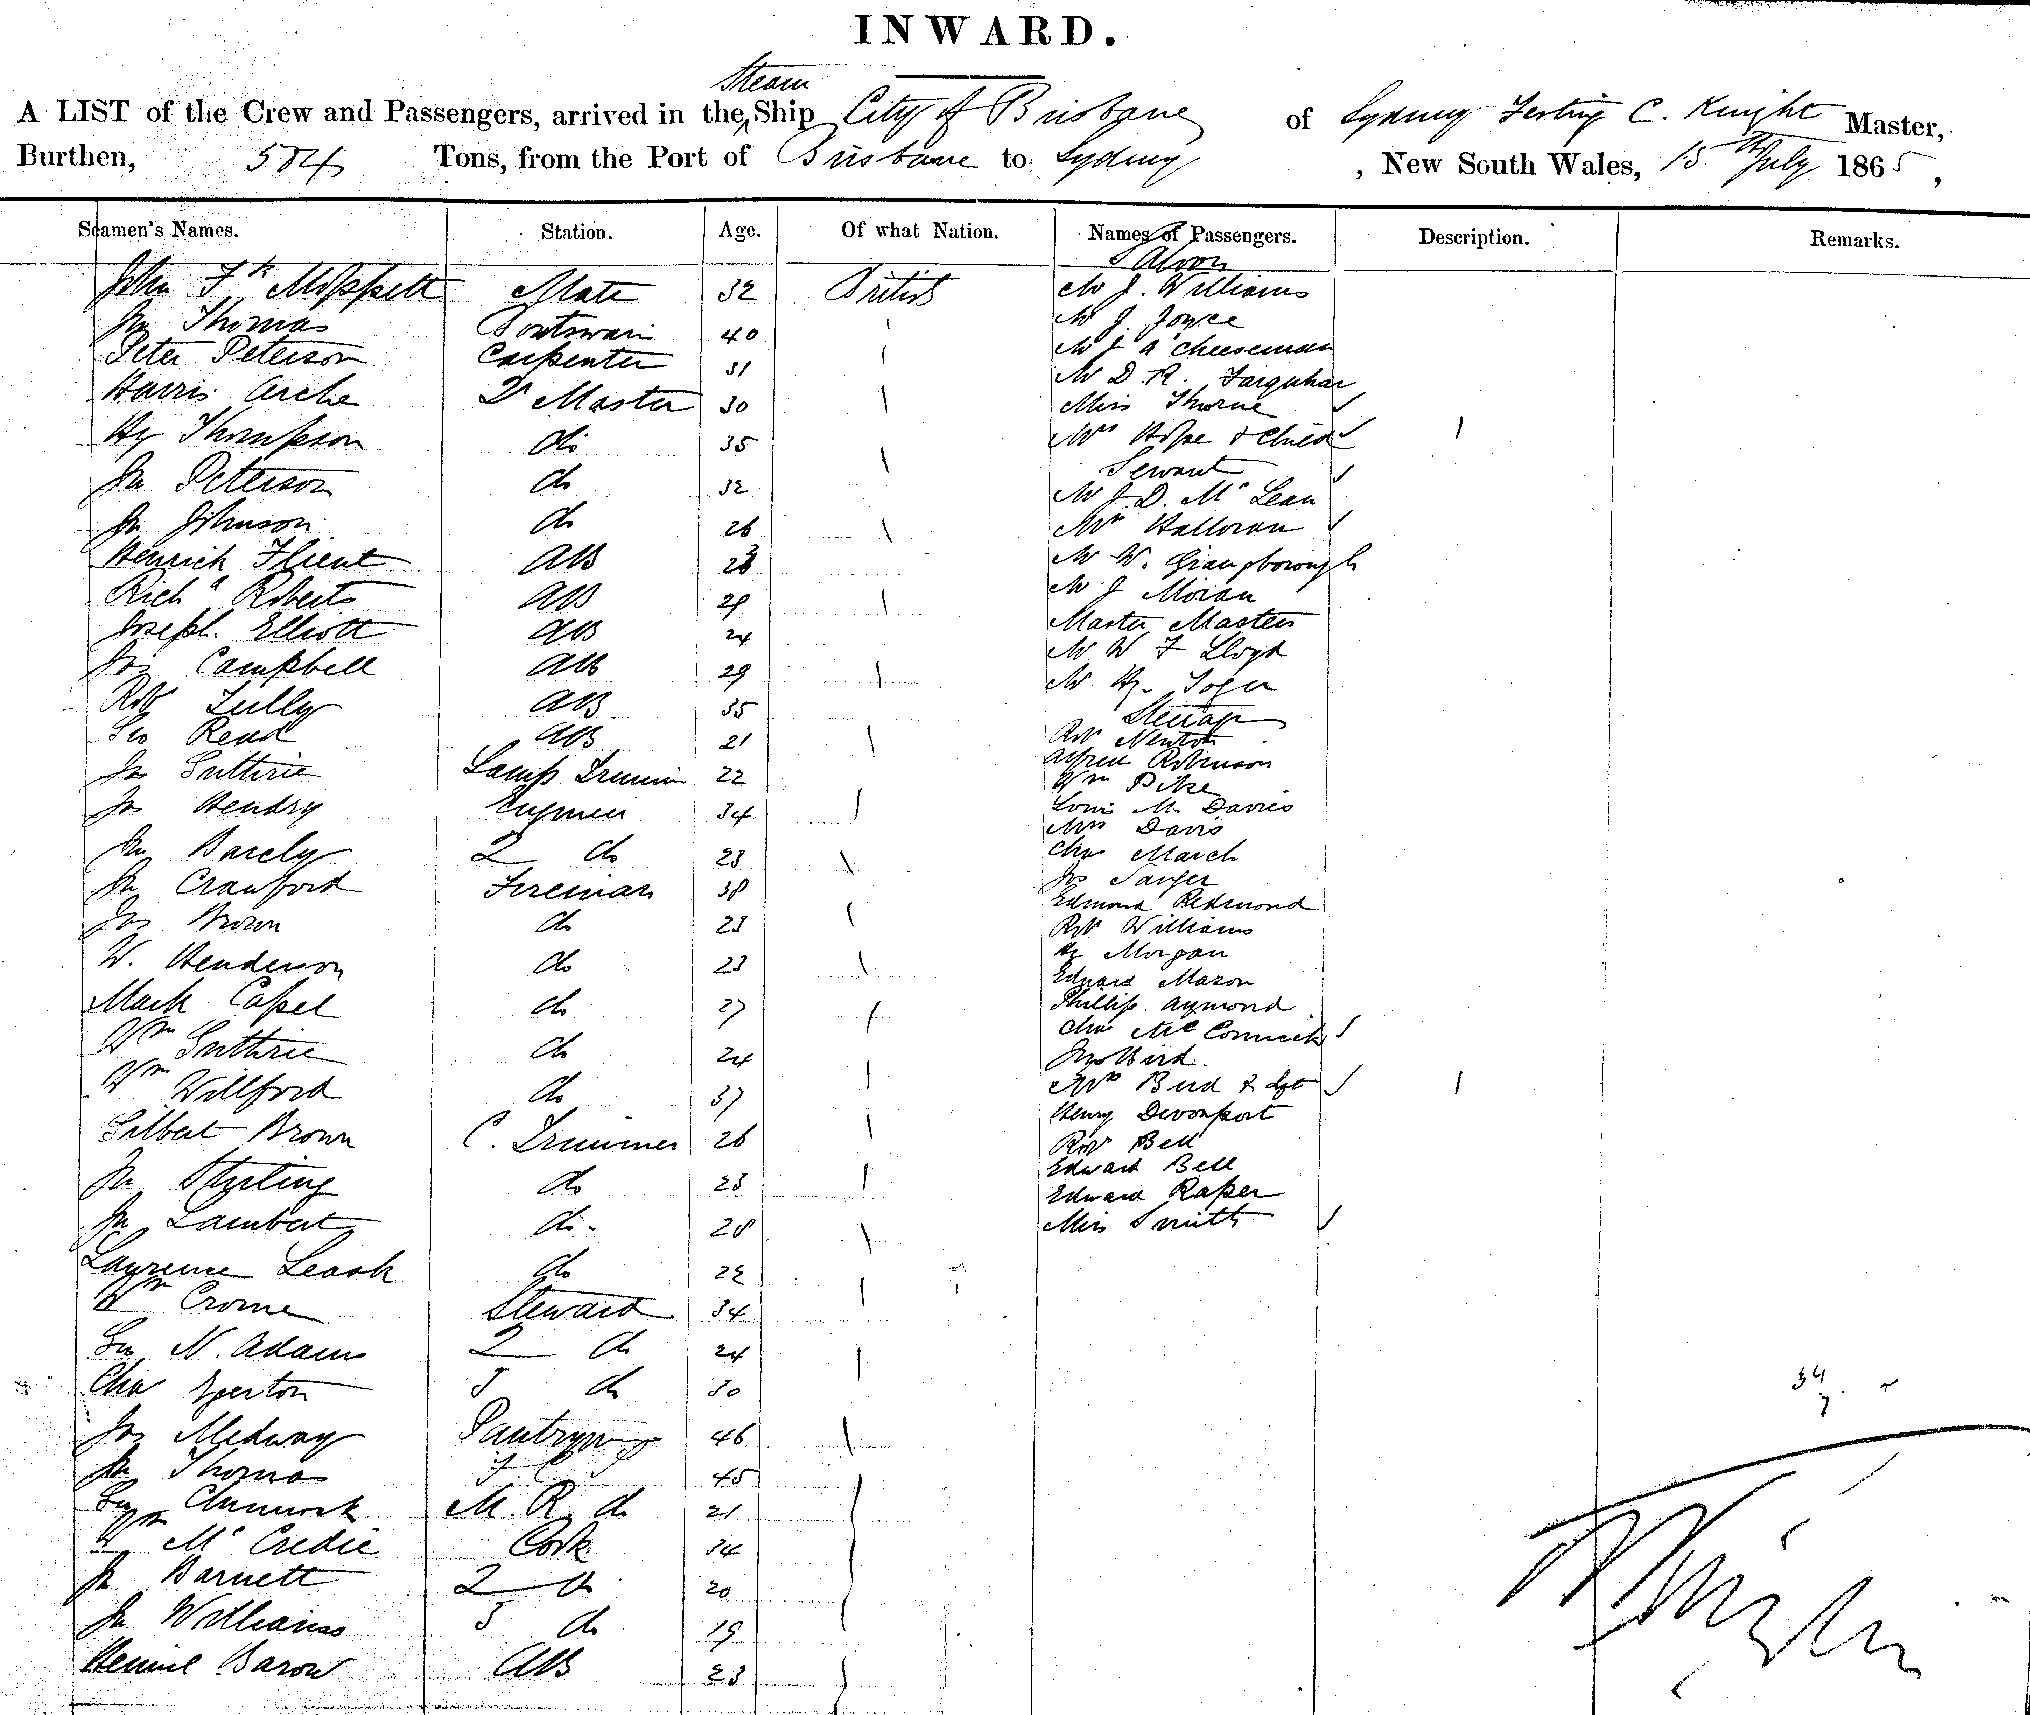 INWARD.
Steam
A LIST of the Crew and Passengers, arrived in the Ship City of Brisbane of Sydney C. Knight Master,
Burthen, 504 Tons, from the Port of Brisbane to Sydney , New South Wales, 15th July 1865,
Seamen's Names. Station. Age. Of what Nation. Names of Passengers. Description. Remarks.
Saloon
John Mate 32 British Mr J. Williams
Jn Thomas Boatswain 40 Mr J. Joyce
Peter Peterson Carpenter 31 Mr J A Cheeseman
Harris Arche Qr Master 30 Mr D. R. Farquhar
Miss Thorne
Hy Thompson do 35 Mrs Hope & Child
Servant
Jn Peterson do 32 Mr J. D. Mc Lean
Jn Johnson do 26 Mrs Halloran
Henrich AB Mr W.
Richd Roberts AB 29 Mr J Moran
Joseph Elliott AB 24 Master Masters
Jas Campbell AB 29 Mr W F Lloyd
Robt AB 35 Mr Hy.
Steerage
Geo Read AB 21 Robt Newton
Alfred Robinson
Jas Guthrie Lamp Trimmer 22 Wm Pike
Jas Hendry Engineer 34 Louis M. Davies
Mrs Davis
Jn 2 do 23 Chas March
Jn Crawford Fireman 38 Jos
Edmond Redmond
Jas Brown do 23 Robt Williams
W. Henderson do 23 Hy Morgan
Edward Mason
Mark Capel do 27 Phillip Aymond
Chas McCormick
Wm Guthrie do 24 Jno Bird
Wm Willford do 37 Mrs Bird & Dgt
Henry Devonport
Gilbert Brown C. Trimmer 26 Robt Bell
Edward Bell
Jn Stirling do 23 Edward Raper
Jn Lambert do 28 Miss Smith
Laurence Leask do 22
Wm Crome Steward 34
Geo N. Adams 2 do 24
Chas 3 do 30
Jas Medway Pantryman 46
Jn Thomas 45
M. R. do 21
Wm Mc Credie Cook 34
Jn Barnett 2 do 20
Jn Williams 3 do 19
Barow AB 23
34
7